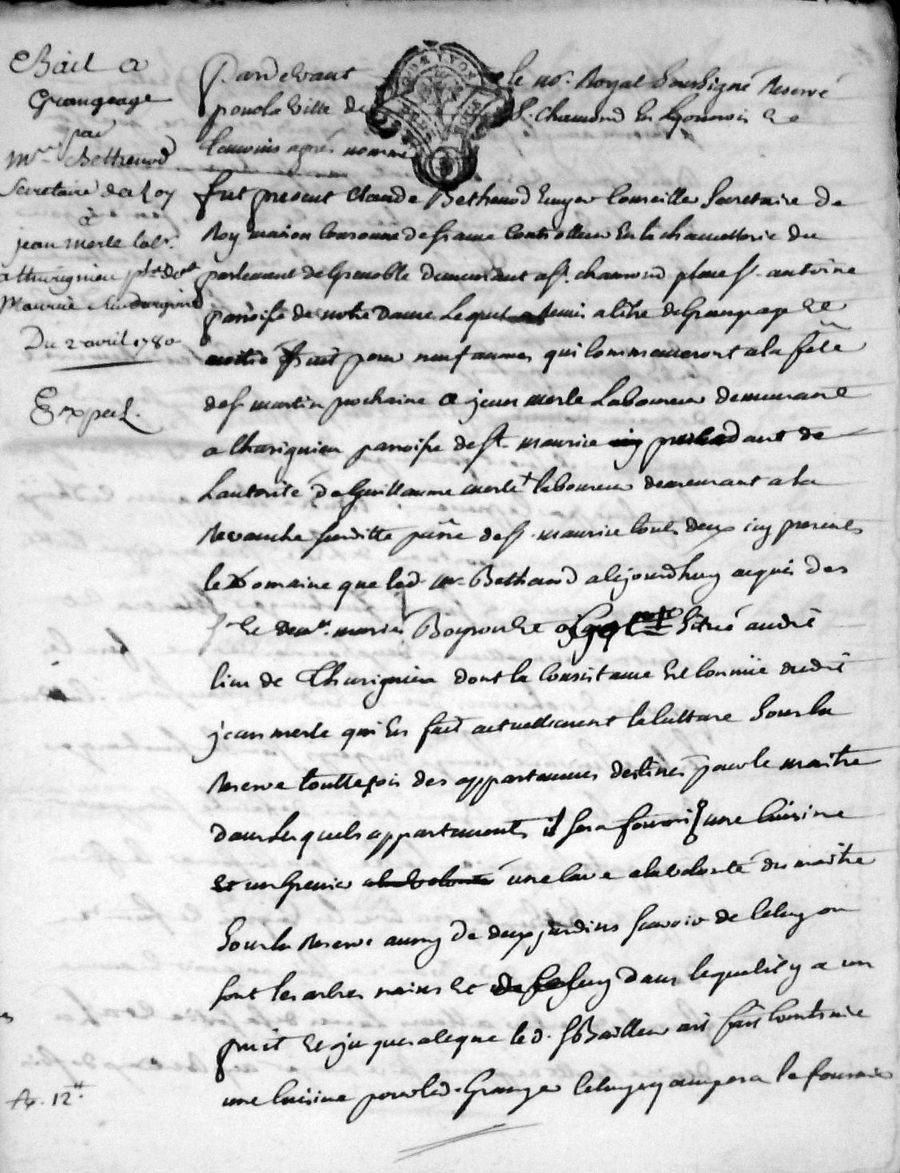 Bail a
Grangeage
par
mr. Bethenod
secretaire du Roy
à
jean merle labr.
a thurignieu
Maurice
Du 2 avril 1780
Exped.
Pardevant le nore. Royal soussigné Reservé
pour la ville de St. Chamond en Lyonnois Et
temoins après nommés
fut present Claude Bethenod Ecuyer Conseiller secretaire du
Roy maison couronne de france controlleur En la chancellerie du
parlement de Grenoble demeurant a st. chamond place st. antoine
paroisse de notre Dame Lequel a remis a titre de Grangeage Et
moitié fruit pour neuf années qui commenceront a la fête
de st martin prochaine a jean merle Laboureur demeurant
a thurignieu paroisse de st. maurice procedant de
Lautorité de Guillaume merle laboureur demeurant a la
Revanche susditte parsse de st. maurice tout deux icy presents
le Domaine que led. mr. Bethenod a cejourdhuy acquis des
sr. Et marie situé audit
lieu de Thurignieu dont la consistance Est connüe dudit
jean merle qui En fait actuellement la culture sous la
Reserve touttefois des appartements destinés pour le maitre
dans lesquels appartements il sera fourni une cuisine
Et un grenier une cave a la volonté du maitre
sous la Reserve aussy de deux jardins scavoir de celuy ou
sont les arbres nains Et de celuy dans lequel il y a un
puit Et jusques a ce que led. sr Bailleur ait fait construire
une cuisine pour led. Granger celuy cy occupera le fournier
12